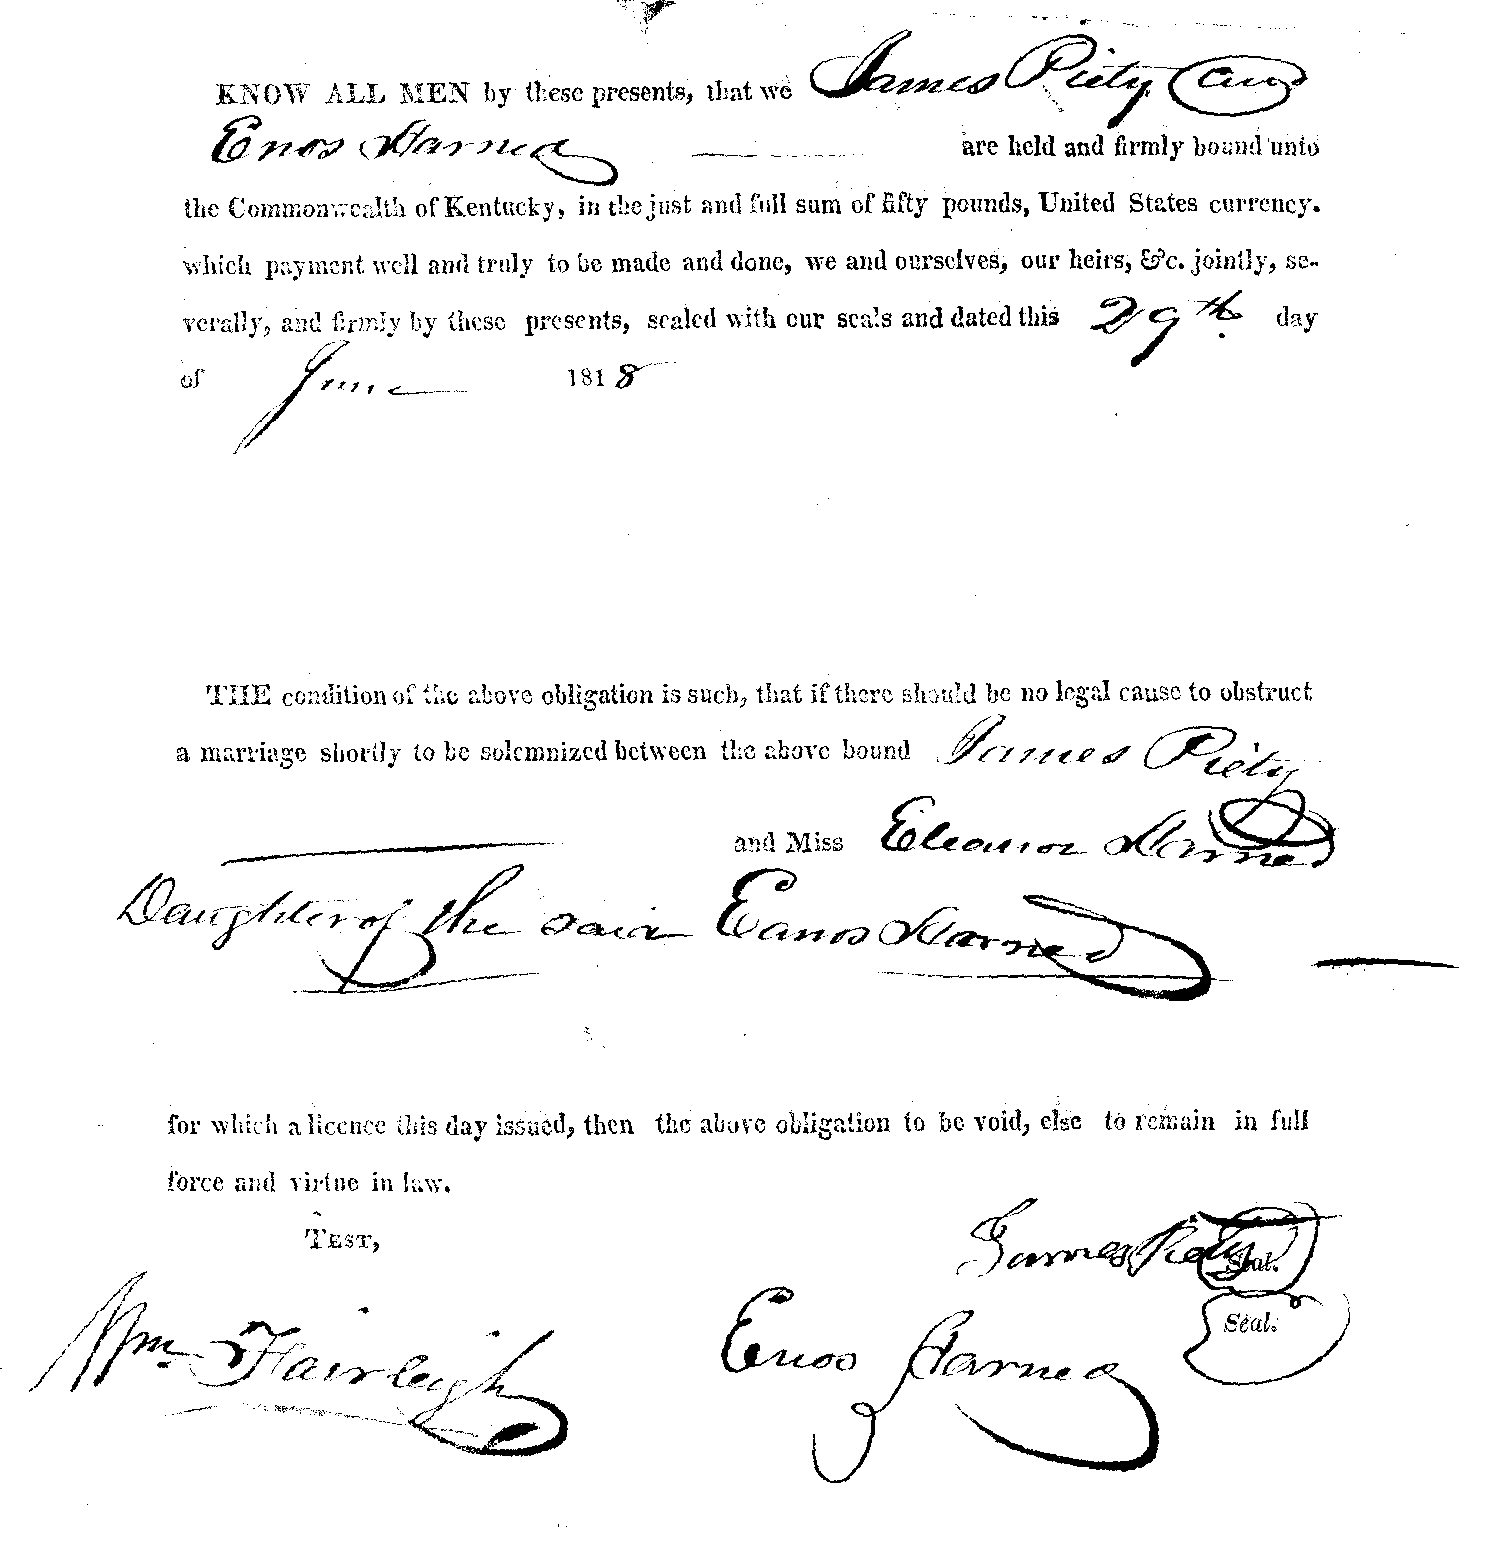 KNOW ALL MEN by these presents, that we James Piety and
Enos Harned are held and firmly bound unto
the Commonwealth of Kentucky, in the just and full sum of fifty pounds, United States currency.
which payment well and truly to be made and done, we and ourselves, our heirs, &c. jointly, se-
verally, and firmly by these presents, sealed with our seals and dated this 29th day
of June 1818
THE condition of the above obligation is such, that if there should be no legal cause to obstruct
a marriage shortly to be solemnized between the above bound James Piety
and Miss Eleanor Harned
Daughter of the said Eanos Harned
for which a licence this day issued, then the above obligation to be void, else to remain in full
force and virtue in law.
TEST,
James Piety Seal.
Wm Fairleigh
Enos Harned Seal.